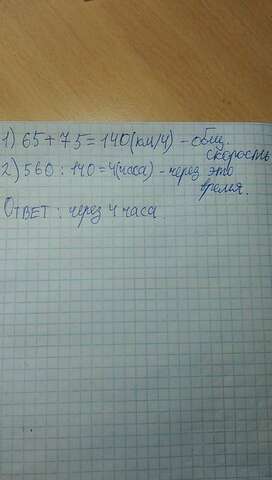 1) 65 + 75 = 140 (км/ч) - общ
скорость
2) 560 : 140 = 4 (часа) - через это
время.
Ответ : через 4 часа